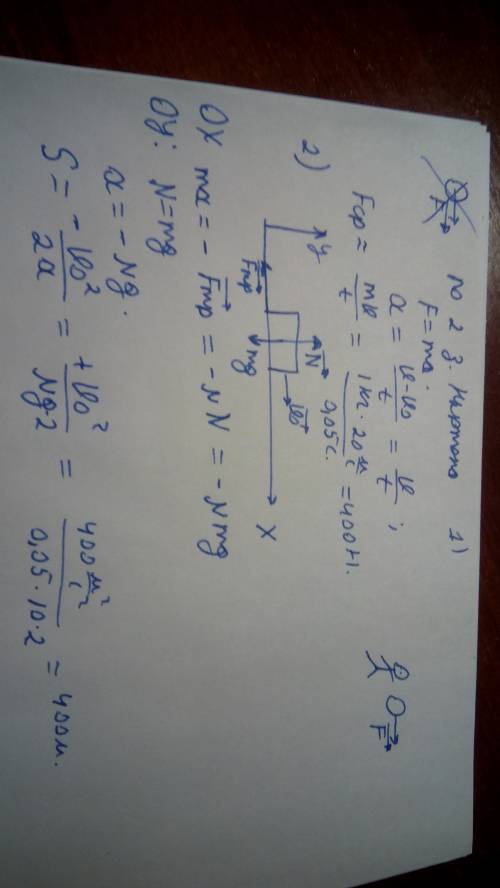 1)
F
по 2 з. Ньютона
F=ma.
a = (v-v₀)/t = v/t ;
Fср = mv/t = (1кг · 20 м/с)/(0,05 с.) = 400 Н.
F
2)
y
N
v₀
Fтр
mg
X
Ox ma = - Fтр = -μN = -μmg
Oy: N=mg
a = - μg.
S = - v₀²/2a = + v₀²/(μg·2) = (400 м²/с²)/(0,05·10·2) = 400м.